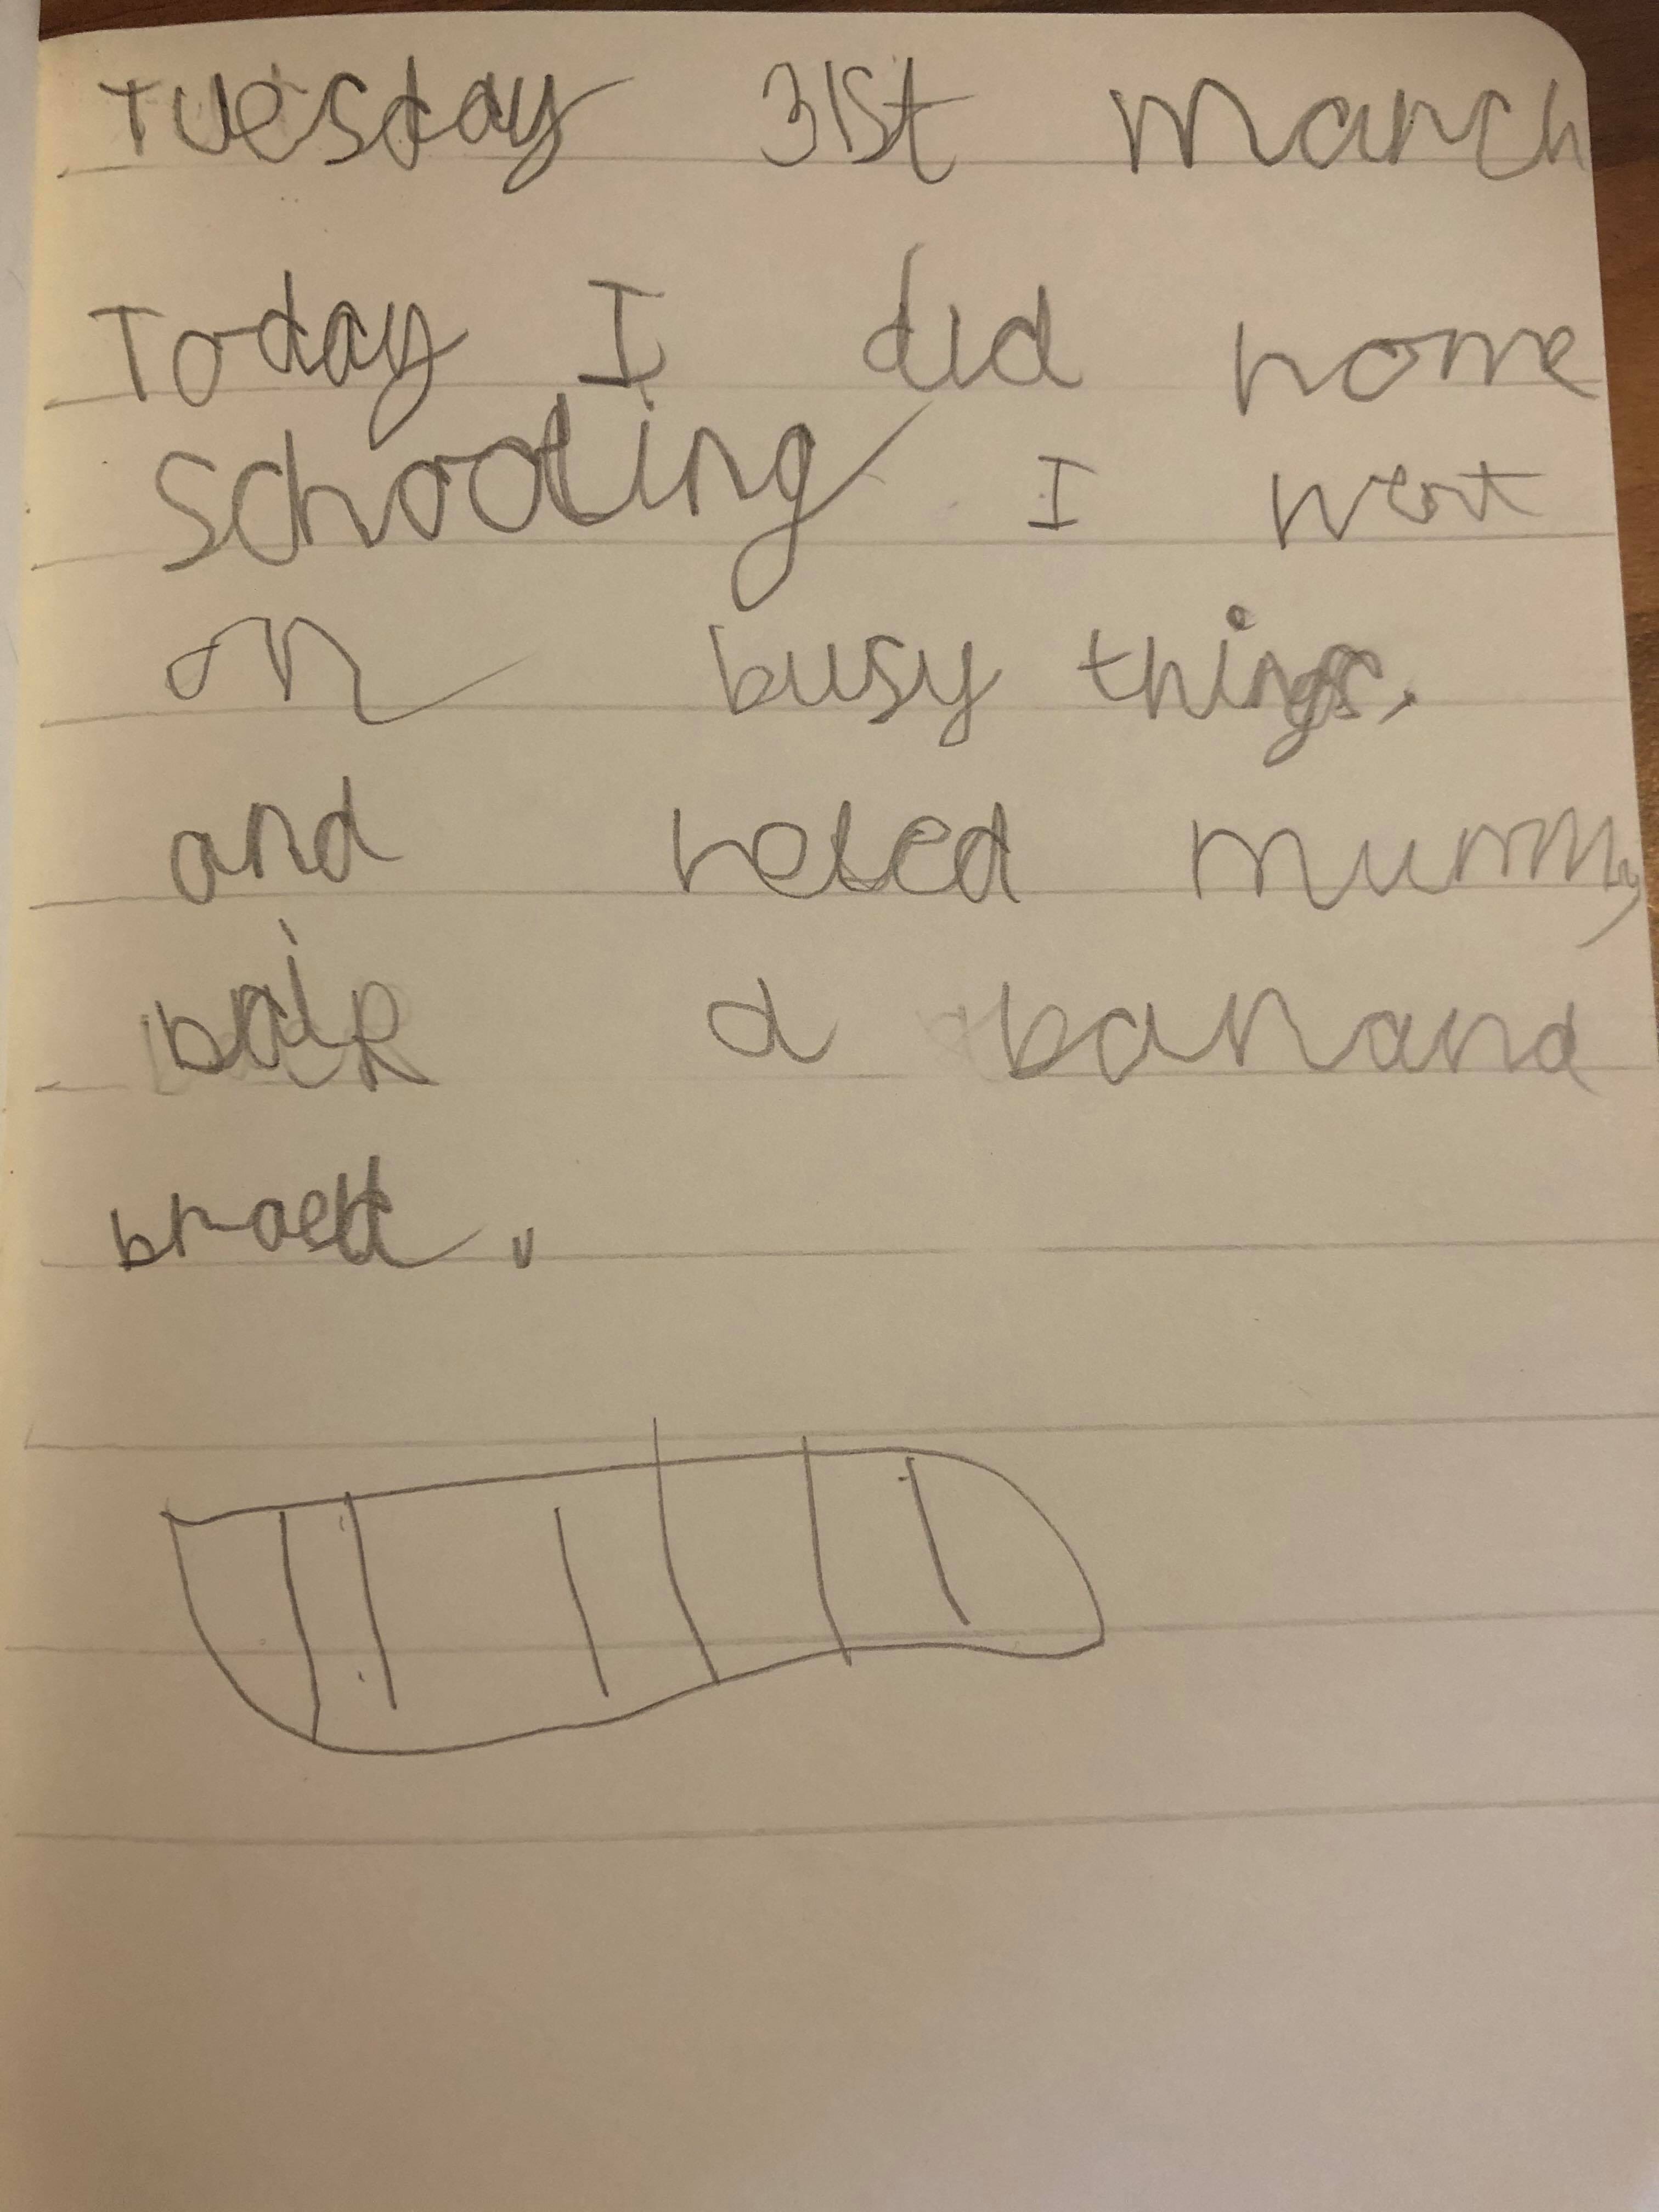 Tuesday 31st March
Today I did home
schooling I went
on busy things.
and heled mummy
a banana